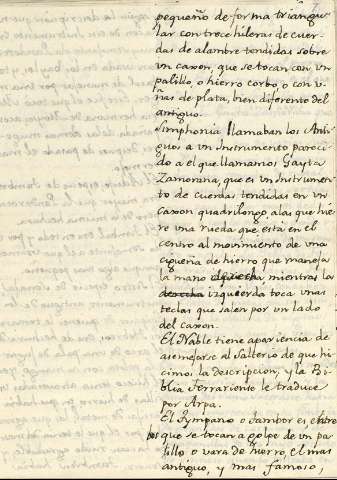 pequeño de forma triangu
lar con trece hileras de cuer
das de alambre tendidas sobre
un caxon, que se tocan con un
palillo, o hierro corbo, o con v
ñas de plata, bien diferente del
antiguo.
Simphonia llamaban los Anti
guos a un Instrumento pareci
do a el que llamamos Gayta
Zamorana, que es un Instrumen
to de cuerdas tendidas en un
caxon quadrilongo, a las que hie
re una rueda que esta en el
centro al movimiento de una
cigueña de hierro que maneja
la mano derecha mientras la
derecha izquierda toca unas
teclas que salen por un lado
del caxon.
El Nable tiene apariencia de
asemejarse al Salterio de que hi
cimos la descripcion, y la Bi
blia Ferrariense le traduce
por Arpa.
El Tympano o Tambor es
bos que se tocan a golpe de un pa
lillo o vara de hierro, el mas
antiguo, y mas famoso,